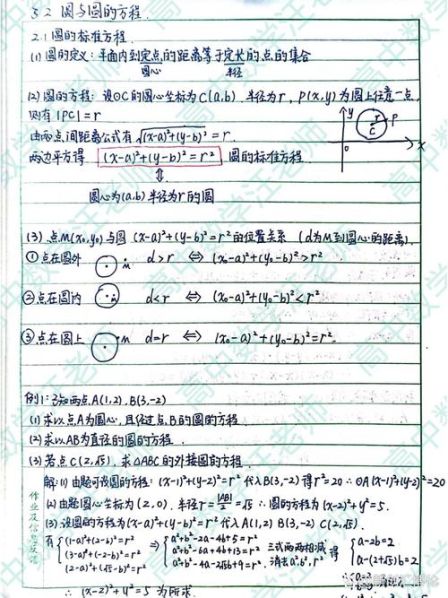 §2 圆与圆的方程.
2.1 圆的标准方程.
(1) 圆的定义: 平面内到定点的距离等于定长的点的集合
圆心 半径
(2) 圆的方程: 设⊙C的圆心坐标为C(a,b) 半径为r, P(x,y)为圆上任意一点.
则有|PC|=r
由两点间距离公式有√(x-a)²+(y-b)²=r.
两边平方得 (x-a)²+(y-b)²=r² 圆的标准方程.
⇕
圆心为(a,b) 半径为r的圆
y
r P
C
0 x
(3) 点M(x₀,y₀)与圆 (x-a)²+(y-b)²=r²的位置关系 (d为M到圆心的距离)
①点在圆外 M d>r ⇔ (x₀-a)²+(y₀-b)²>r²
②点在圆内 d<r ⇔ (x₀-a)²+(y₀-b)²<r²
③点在圆上 M d=r ⇔ (x₀-a)²+(y₀-b)²=r².
例1: 已知两点A(1,2), B(3,-2)
(1) 求以点A为圆心, 且经过点B的圆的方程.
(2) 求以AB为直径的圆的方程.
(3) 若点C(2,√5), 求△ABC的外接圆的方程.
解: (1) 由题可设圆的方程: (x-1)²+(y-2)²=r² 代入B(3,-2)得r²=20 ∴⊙A (x-1)²+(y-2)²=20
(2) 由题圆心坐标为(2,0). 半径r=|AB|/2=√5 ∴圆的方程为(x-2)²+y²=5.
(3) 设圆的方程为(x-a)²+(y-b)²=r² 代入A(1,2) B(3,-2) C(2,√5).
有 { (1-a)²+(2-b)²=r² ⇒ { a²+b²-2a-4b+5=r² 三式两两相减 得 { a-2b=2
(3-a)²+(-2-b)²=r² a²+b²-6a+4b+13=r² 消去a²,b²,r² a-(2+√5)b=2
(2-a)²+(√5-b)²=r² a²+b²-4a-2√5b+9=r².
∴ (x-2)²+y²=5 为所求.
作业及信息反馈
高中数学汪老师